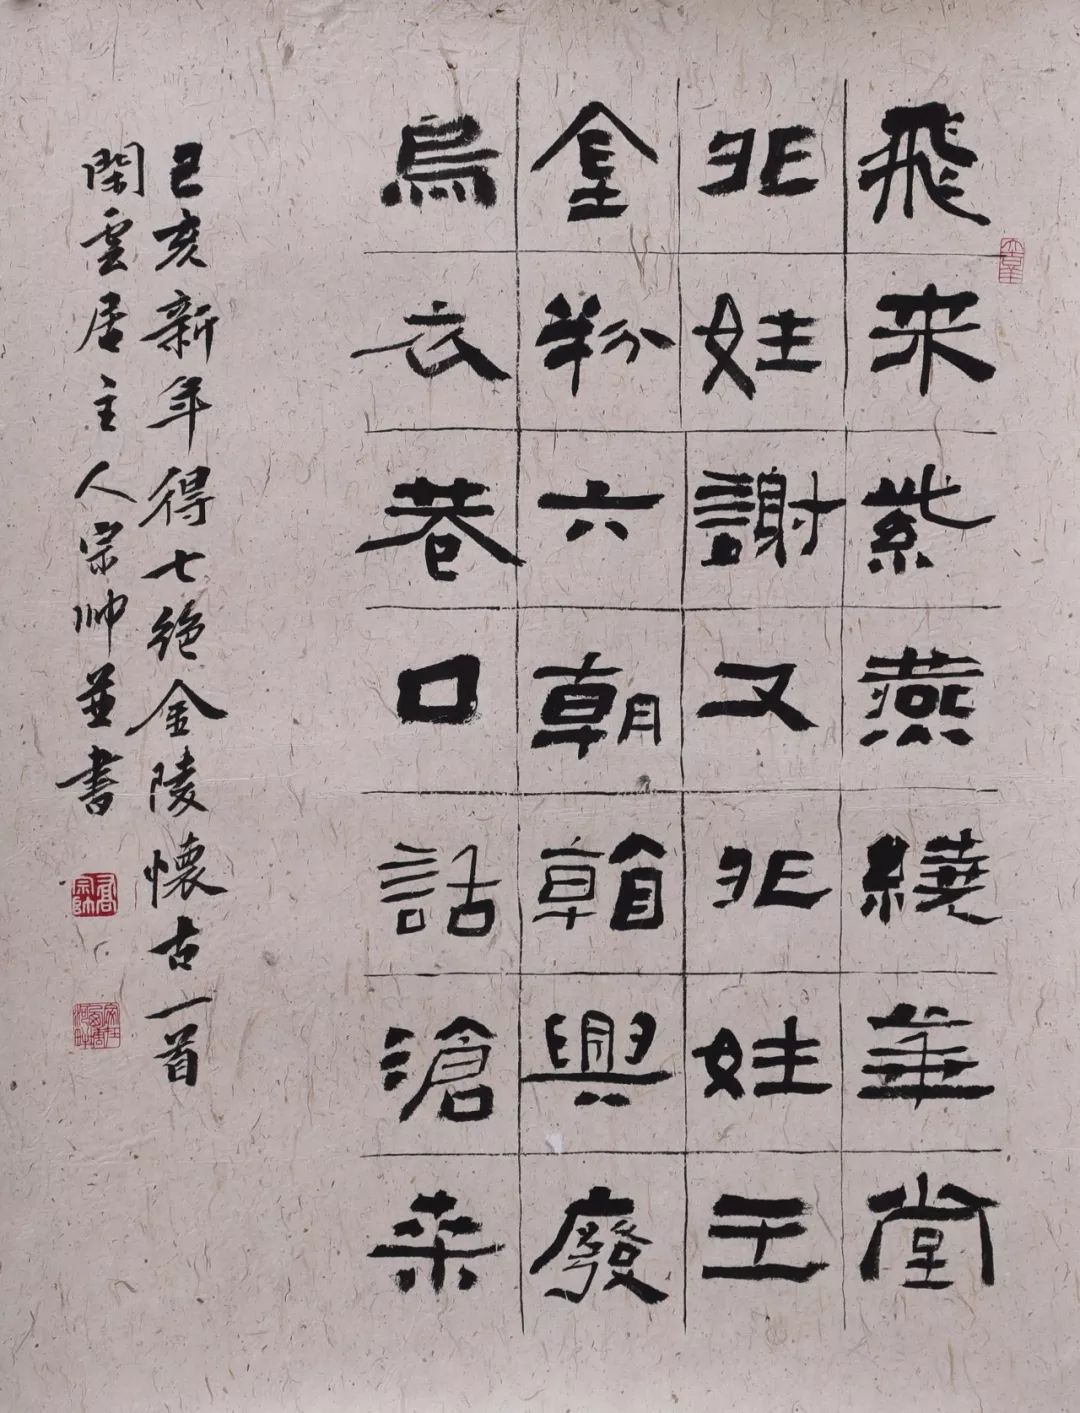 飛来紫燕繞華堂
非姓謝又非姓王
金粉六朝朝興廢
烏衣巷口話滄桒
己亥新年得七絕金陵懷古一首
閑雲居主人宗帥並書
高宗帥